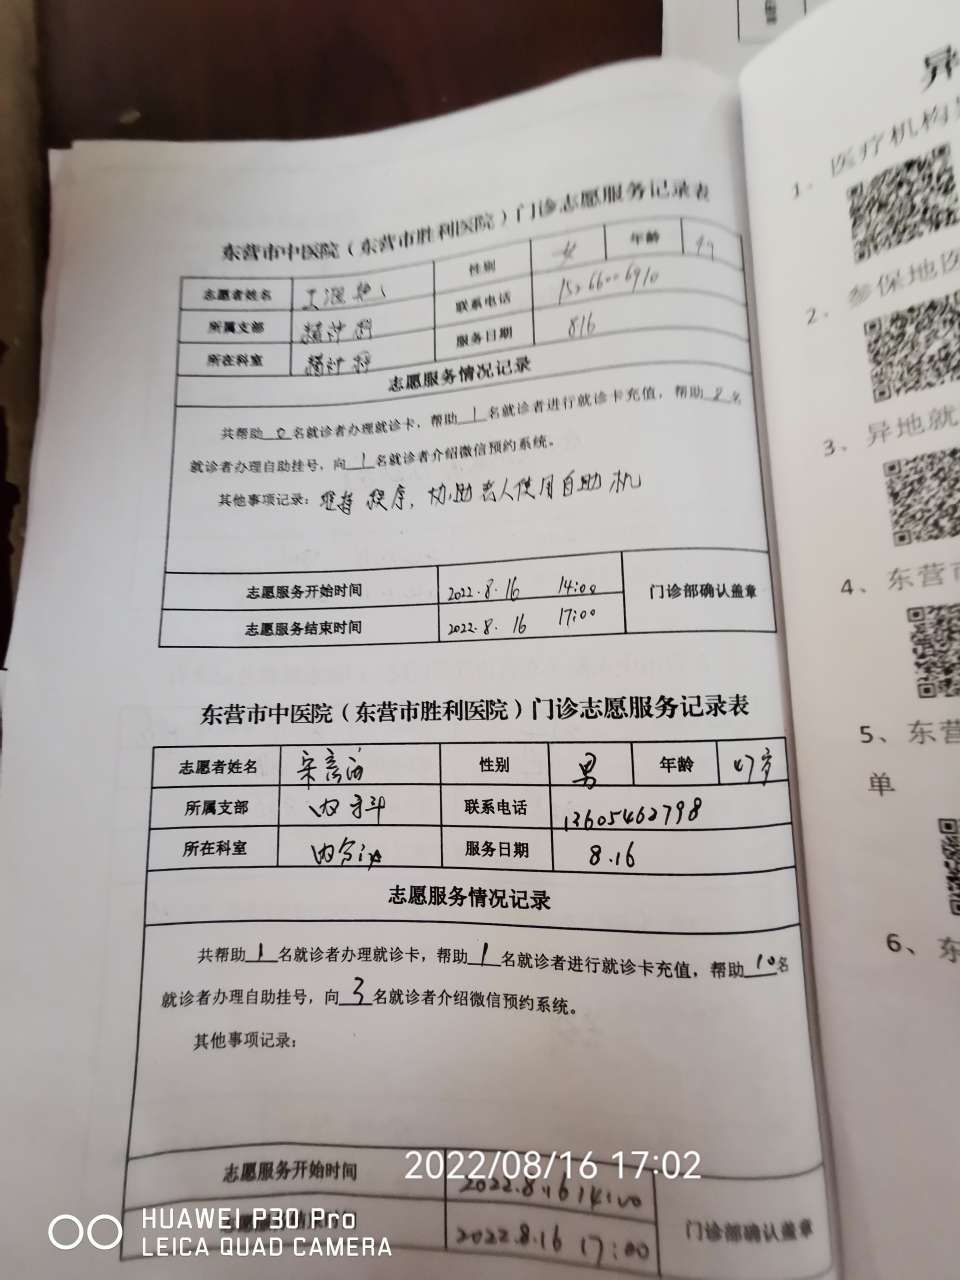 异
医疗机构
1.
2. 参保地医
3、异地就
4、东营市
5、东营
单
6、东
东营市中医院（东营市胜利医院）门诊志愿服务记录表
志愿者姓名 性别 女 年龄
所属支部 精神科 联系电话
所在科室 精神科 服务日期 816
志愿服务情况记录
共帮助 0 名就诊者办理就诊卡，帮助 1 名就诊者进行就诊卡充值，帮助 2 名
就诊者办理自助挂号，向 1 名就诊者介绍微信预约系统。
其他事项记录：维持秩序，协助老人使用自助机
志愿服务开始时间 2022.8.16 14:00 门诊部确认盖章
志愿服务结束时间 2022.8.16 17:00
东营市中医院（东营市胜利医院）门诊志愿服务记录表
志愿者姓名 性别 男 年龄 47岁
所属支部 内科 联系电话 13605462798
所在科室 内分泌 服务日期 8.16
志愿服务情况记录
共帮助 1 名就诊者办理就诊卡，帮助 1 名就诊者进行就诊卡充值，帮助 10 名
就诊者办理自助挂号，向 3 名就诊者介绍微信预约系统。
其他事项记录：
志愿服务开始时间 2022.8.16 14:00 门诊部确认盖章
2022.8.16 17:00
2022/08/16 17:02
HUAWEI P30 Pro
LEICA QUAD CAMERA